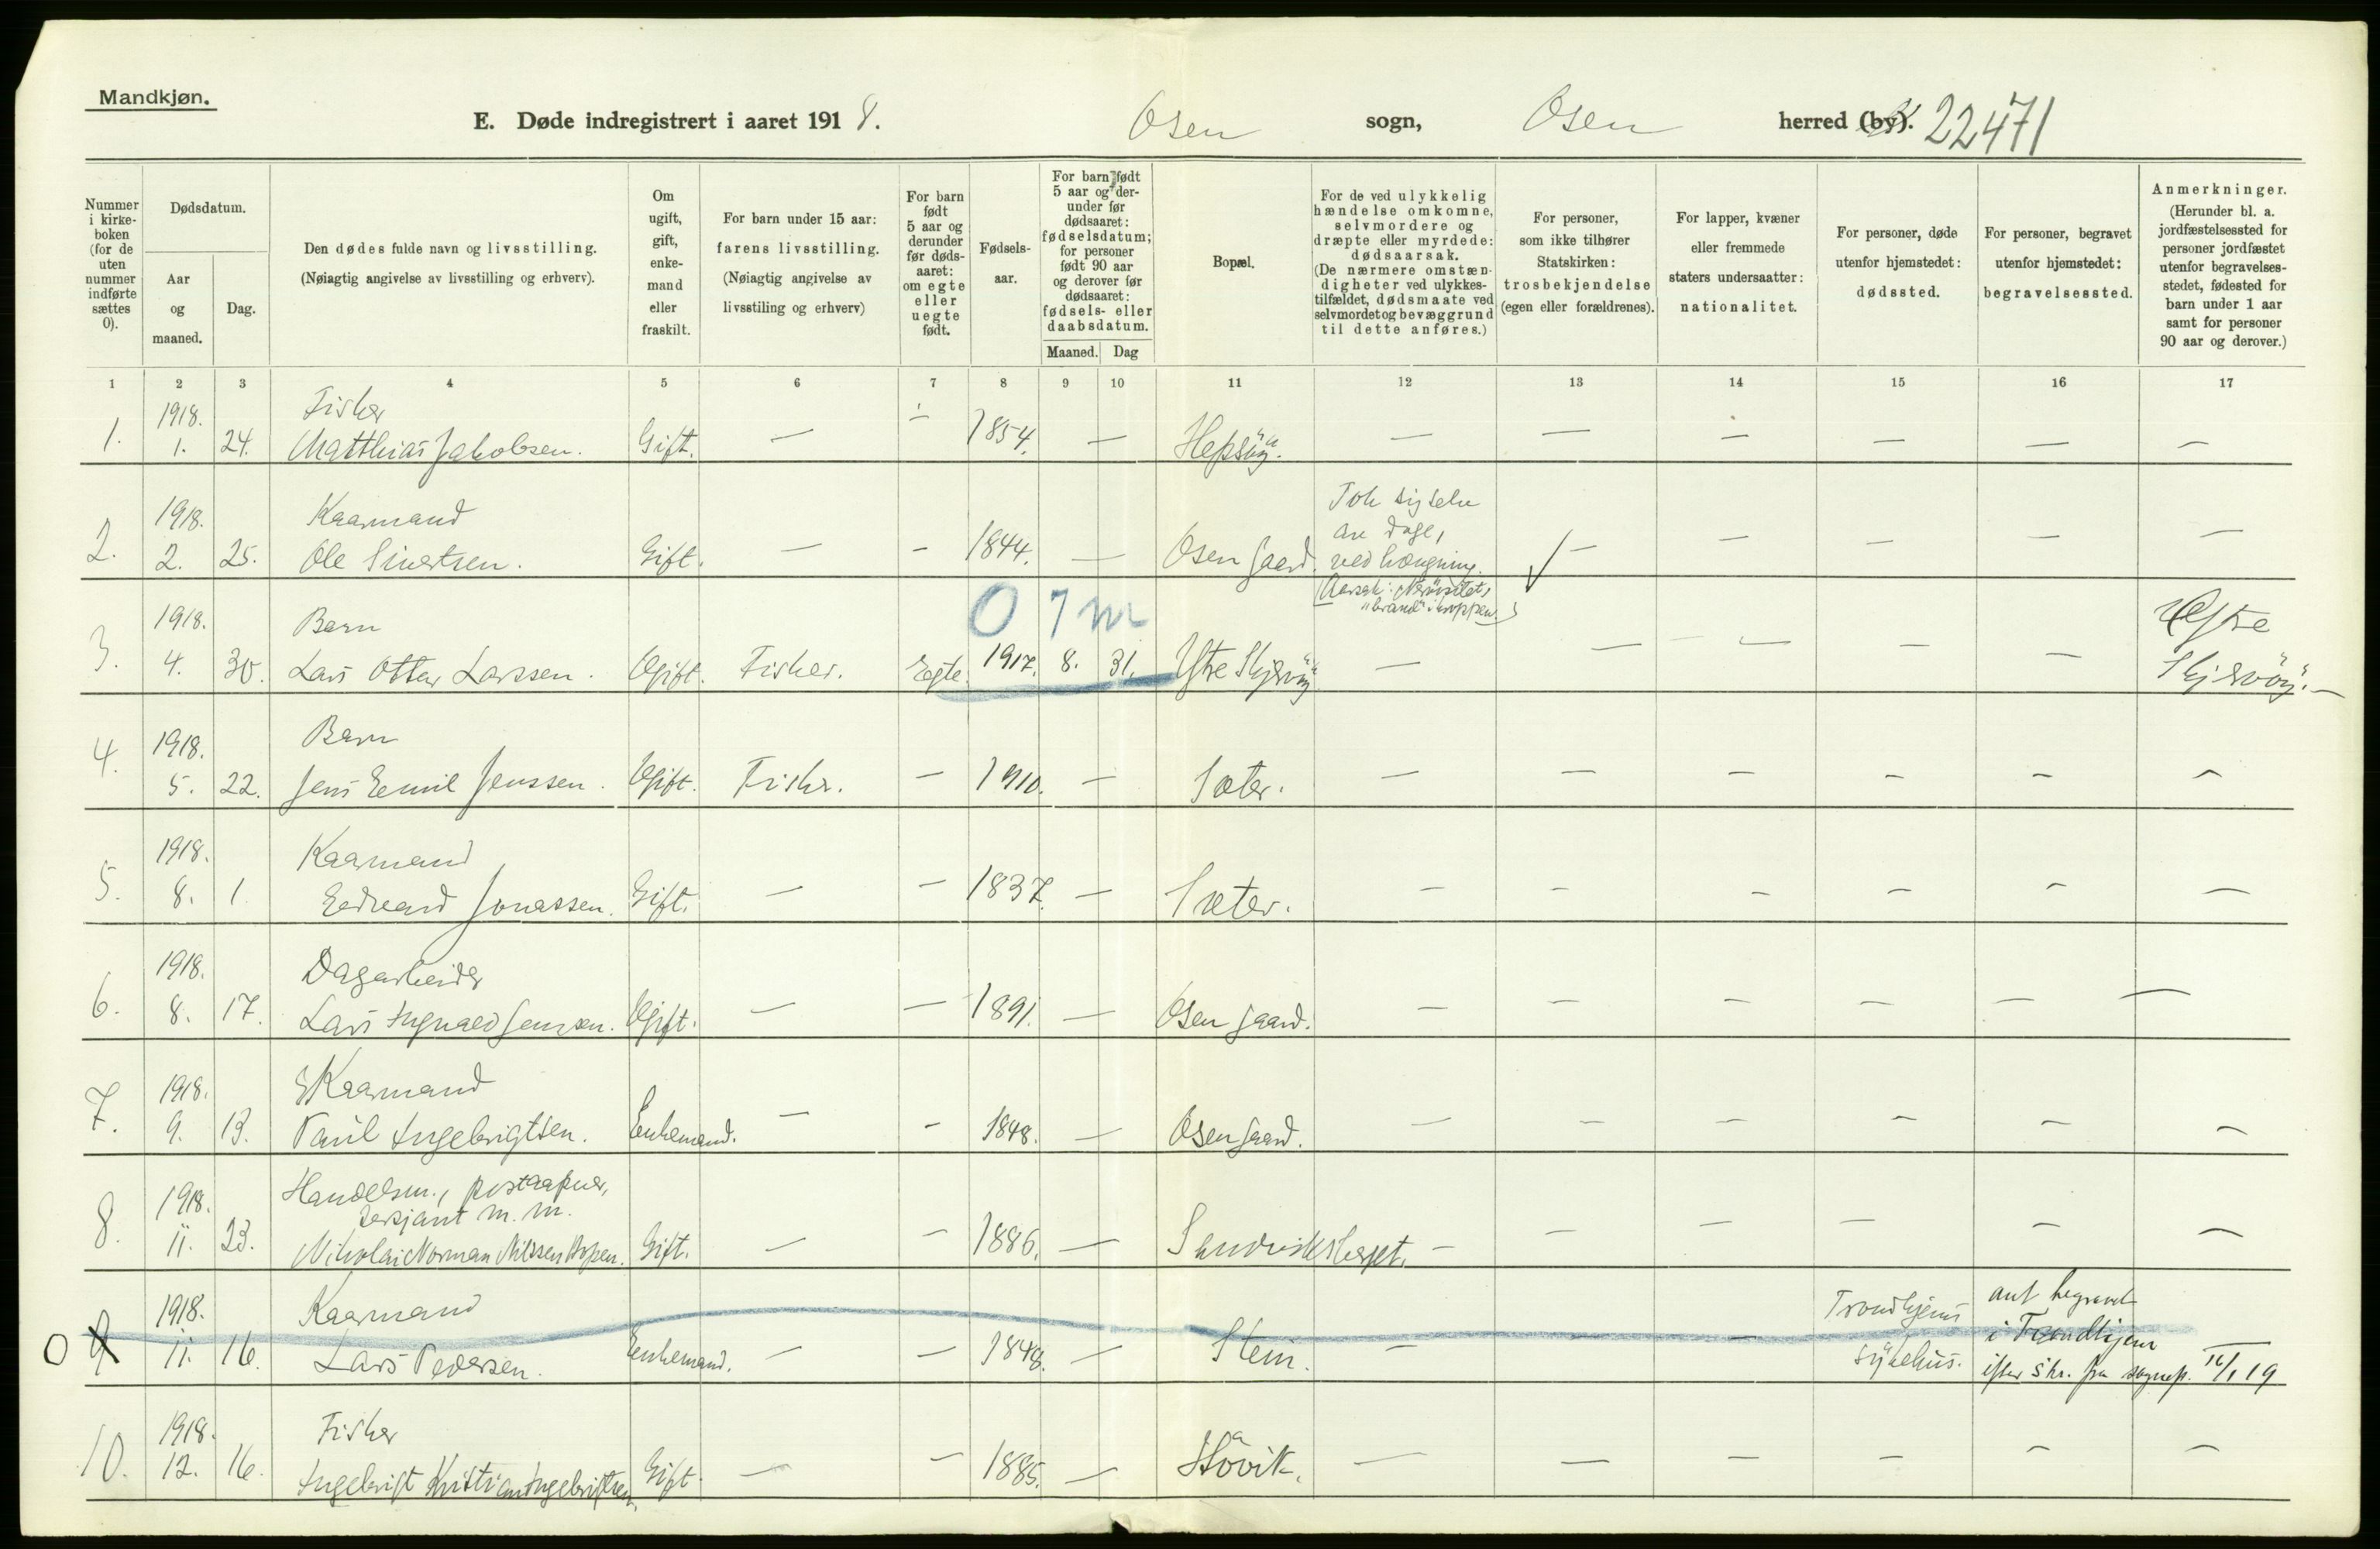 Mandkjøn.
E. Døde indregistrert i aaret 1918. Osen sogn, Osen herred (by). 22471
Nummer i kirkeboken (for de uten nummer indførte sættes 0).
Dødsdatum.
Aar og maaned.
Dag.
Den dødes fulde navn og livsstilling.
(Nøiagtig angivelse av livsstilling og erhverv).
Om ugift, gift, enkemand eller fraskilt.
For barn under 15 aar: farens livsstilling.
(Nøiagtig angivelse av livsstiling og erhverv)
For barn født 5 aar og derunder før dødsaaret: om egte eller uegte født.
Fødselsaar.
For barn født 5 aar og derunder før dødsaaret: fødselsdatum; for personer født 90 aar og derover før dødsaaret: fødsels- eller daabsdatum.
Maaned. Dag
Bopæl.
For de ved ulykkelig hændelse omkomne, selvmordere og dræpte eller myrdede: dødsaarsak.
(De nærmere omstændigheter ved ulykkestilfældet, dødsmaate ved selvmordet og bevæggrund til dette anføres.)
For personer, som ikke tilhører Statskirken: trosbekjendelse (egen eller forældrenes).
For lapper, kvæner eller fremmede staters undersaatter: nationalitet.
For personer, døde utenfor hjemstedet: dødssted.
For personer, begravet utenfor hjemstedet: begravelsessted.
Anmerkninger.
(Herunder bl. a. jordfæstelsessted for personer jordfæstet utenfor begravelsesstedet, fødested for barn under 1 aar samt for personer 90 aar og derover.)
1 2 3 4 5 6 7 8 9 10 11 12 13 14 15 16 17
1918. Fisker
1. 1. 24. Matthias Jakobsen. Gift. — — 1854. — Hepsöy. — — — — — —
1918. Kaarmand
2. 2. 25. Ole Sivertsen. Gift. — — 1844. — Osen gaard. — — — — —
Tok sig selv
av dage,
ved hængning.
(Aarsak: Nervösitet,
"brand" i kroppen.)
0 7 m
1918. Barn
3. 4. 30. Lars Ottar Larssen. Ugift. Fisker. Egte. 1917. 8. 31. Ytre Skjærvöy — — — — —
Ytre
Skjervöy. —
1918. Barn
4. 5. 22. Jens Emil Jenssen. Ugift. Fisker. — 1910. — Sæter. — — — — — —
1918. Kaarmand
5. 8. 1. Edvard Jonassen. Gift. — — 1837. — Sæter. — — — — — —
1918. Dagarbeider
6. 8. 17. Lars Ingvald Jensen. Ugift. — — 1891. — Osen gaard. — — — — — —
1918. Kaarmand
7. 9. 13. Paul Ingebrigtsen. Enkemand. — — 1848. — Osen gaard. — — — — — —
1918. Handelsm., postaapner,
sersjant m. m.
8. 11. 23. Nikolai Norman Nilssen Hopen. Gift. — — 1886. — Sandviksberget. — — — — — —
1918. Kaarmand
0 9 11. 16. Lars Pedersen. Enkemand. — — 1848. — Stein. — — —
Trondhjems
sykehus.
ant. begravet
i Trondhjem
efter skr. fra sognep. 16/1 19
1918. Fisker
10. 12. 16. Ingebrigt Kristian Ingebrigtsen. Gift. — — 1885. — Håvik. — — — — — —